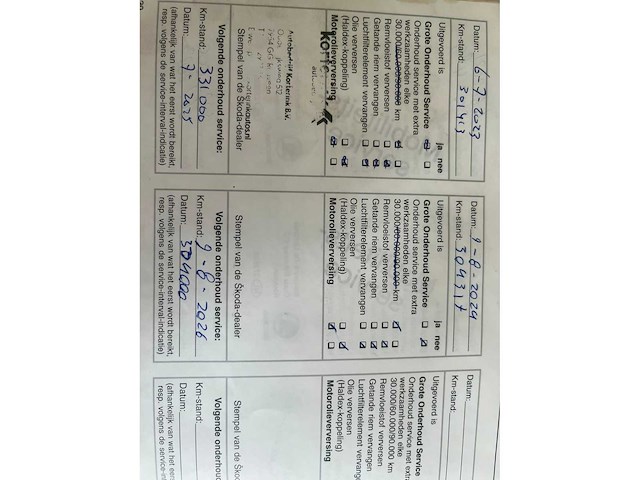 Datum: 6-9-2023
Km-stand: 301413
Uitgevoerd is ja nee
Grote Onderhoud Service
Onderhoud service met extra
werkzaamheden elke
30.000/60.000/90.000 km
Remvloeistof verversen
Getande riem vervangen
Luchtfilterelement vervangen
Olie verversen
(Haldex-koppeling)
Motorolieverversing
Autobedrijf Korterink B.V.
Stempel van de Škoda-dealer
Volgende onderhoud service:
Km-stand: 331000
Datum: 9-2025
(afhankelijk van wat het eerst wordt bereikt,
resp. volgens de service-interval-indicatie)
Datum: 9-8-2024
Km-stand: 304317
Uitgevoerd is ja nee
Grote Onderhoud Service
Onderhoud service met extra
werkzaamheden elke
30.000/60.000/90.000 km
Remvloeistof verversen
Getande riem vervangen
Luchtfilterelement vervangen
Olie verversen
(Haldex-koppeling)
Motorolieverversing
Stempel van de Škoda-dealer
Volgende onderhoud service:
Km-stand: 9-8-2026
Datum: 304000
(afhankelijk van wat het eerst wordt bereikt,
resp. volgens de service-interval-indicatie)
Datum:
Km-stand:
Uitgevoerd is
Grote Onderhoud Service
Onderhoud service met extra
werkzaamheden elke
30.000/60.000/90.000 km
Remvloeistof verversen
Getande riem vervangen
Luchtfilterelement vervangen
Olie verversen
(Haldex-koppeling)
Motorolieverversing
Stempel van de Škoda
Volgende onderhoud
Km-stand:
Datum:
(afhankelijk van wat het eerst
resp. volgens de service-in